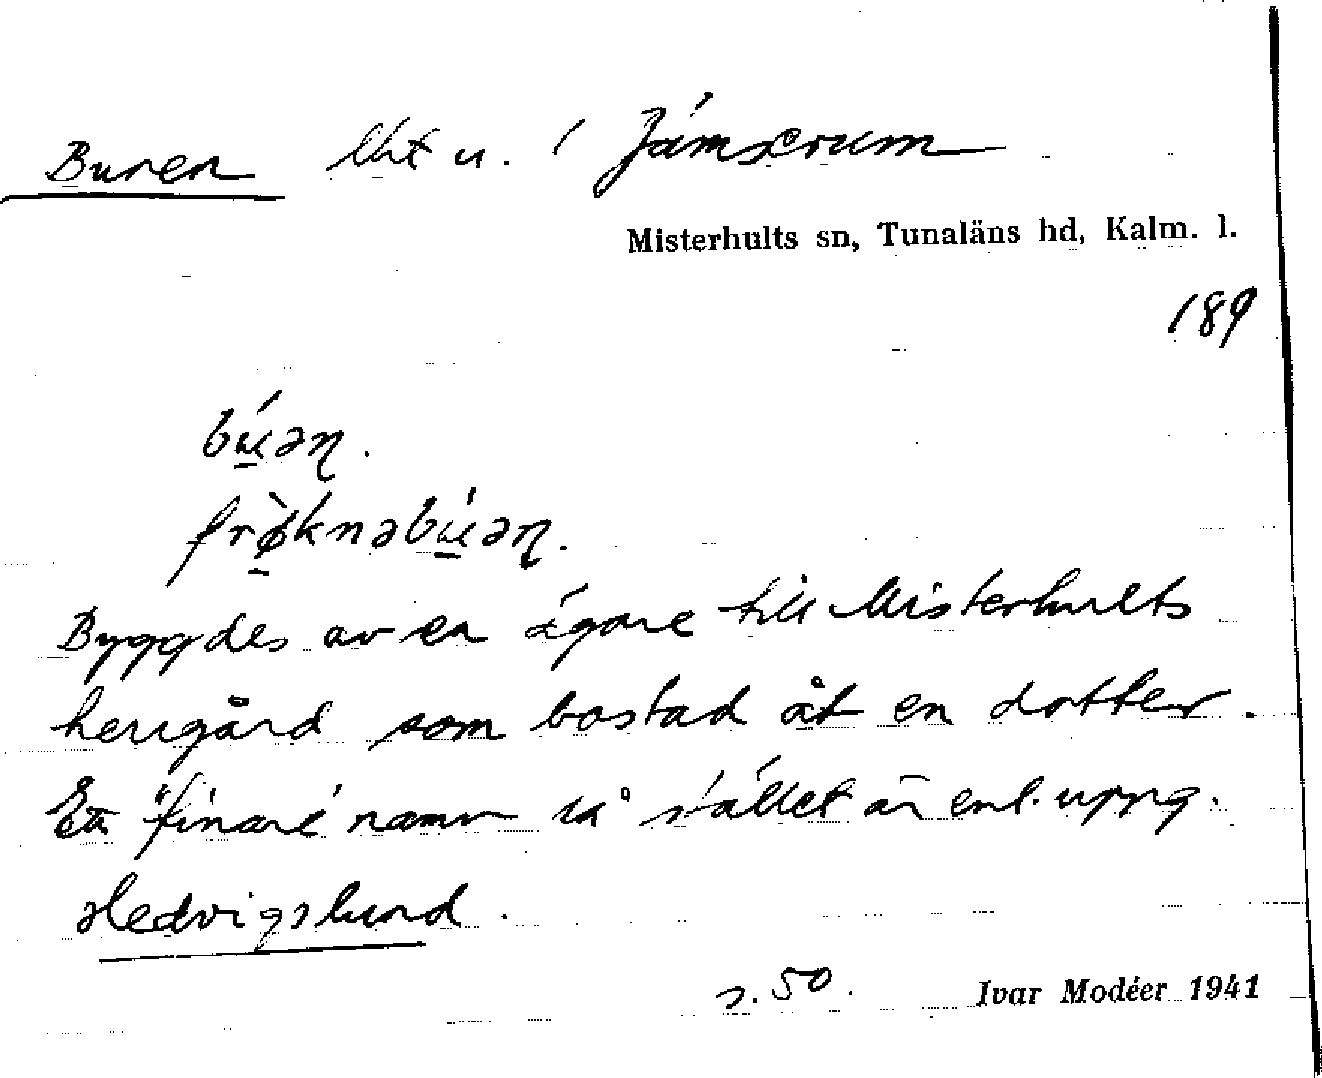 Buren lht u. i Jämserum
Misterhults sn, Tunaläns hd, Kalm. l.
189
bú̱əɳ.
frø̱̀knəbú̱əɳ.
Byggdes av en ägare till Misterhults
herrgård som bostad åt en dotter.
Ett "finare" namn på stället är enl. uppg.
Hedvigslund.
s. 50. Ivar Modéer 1941